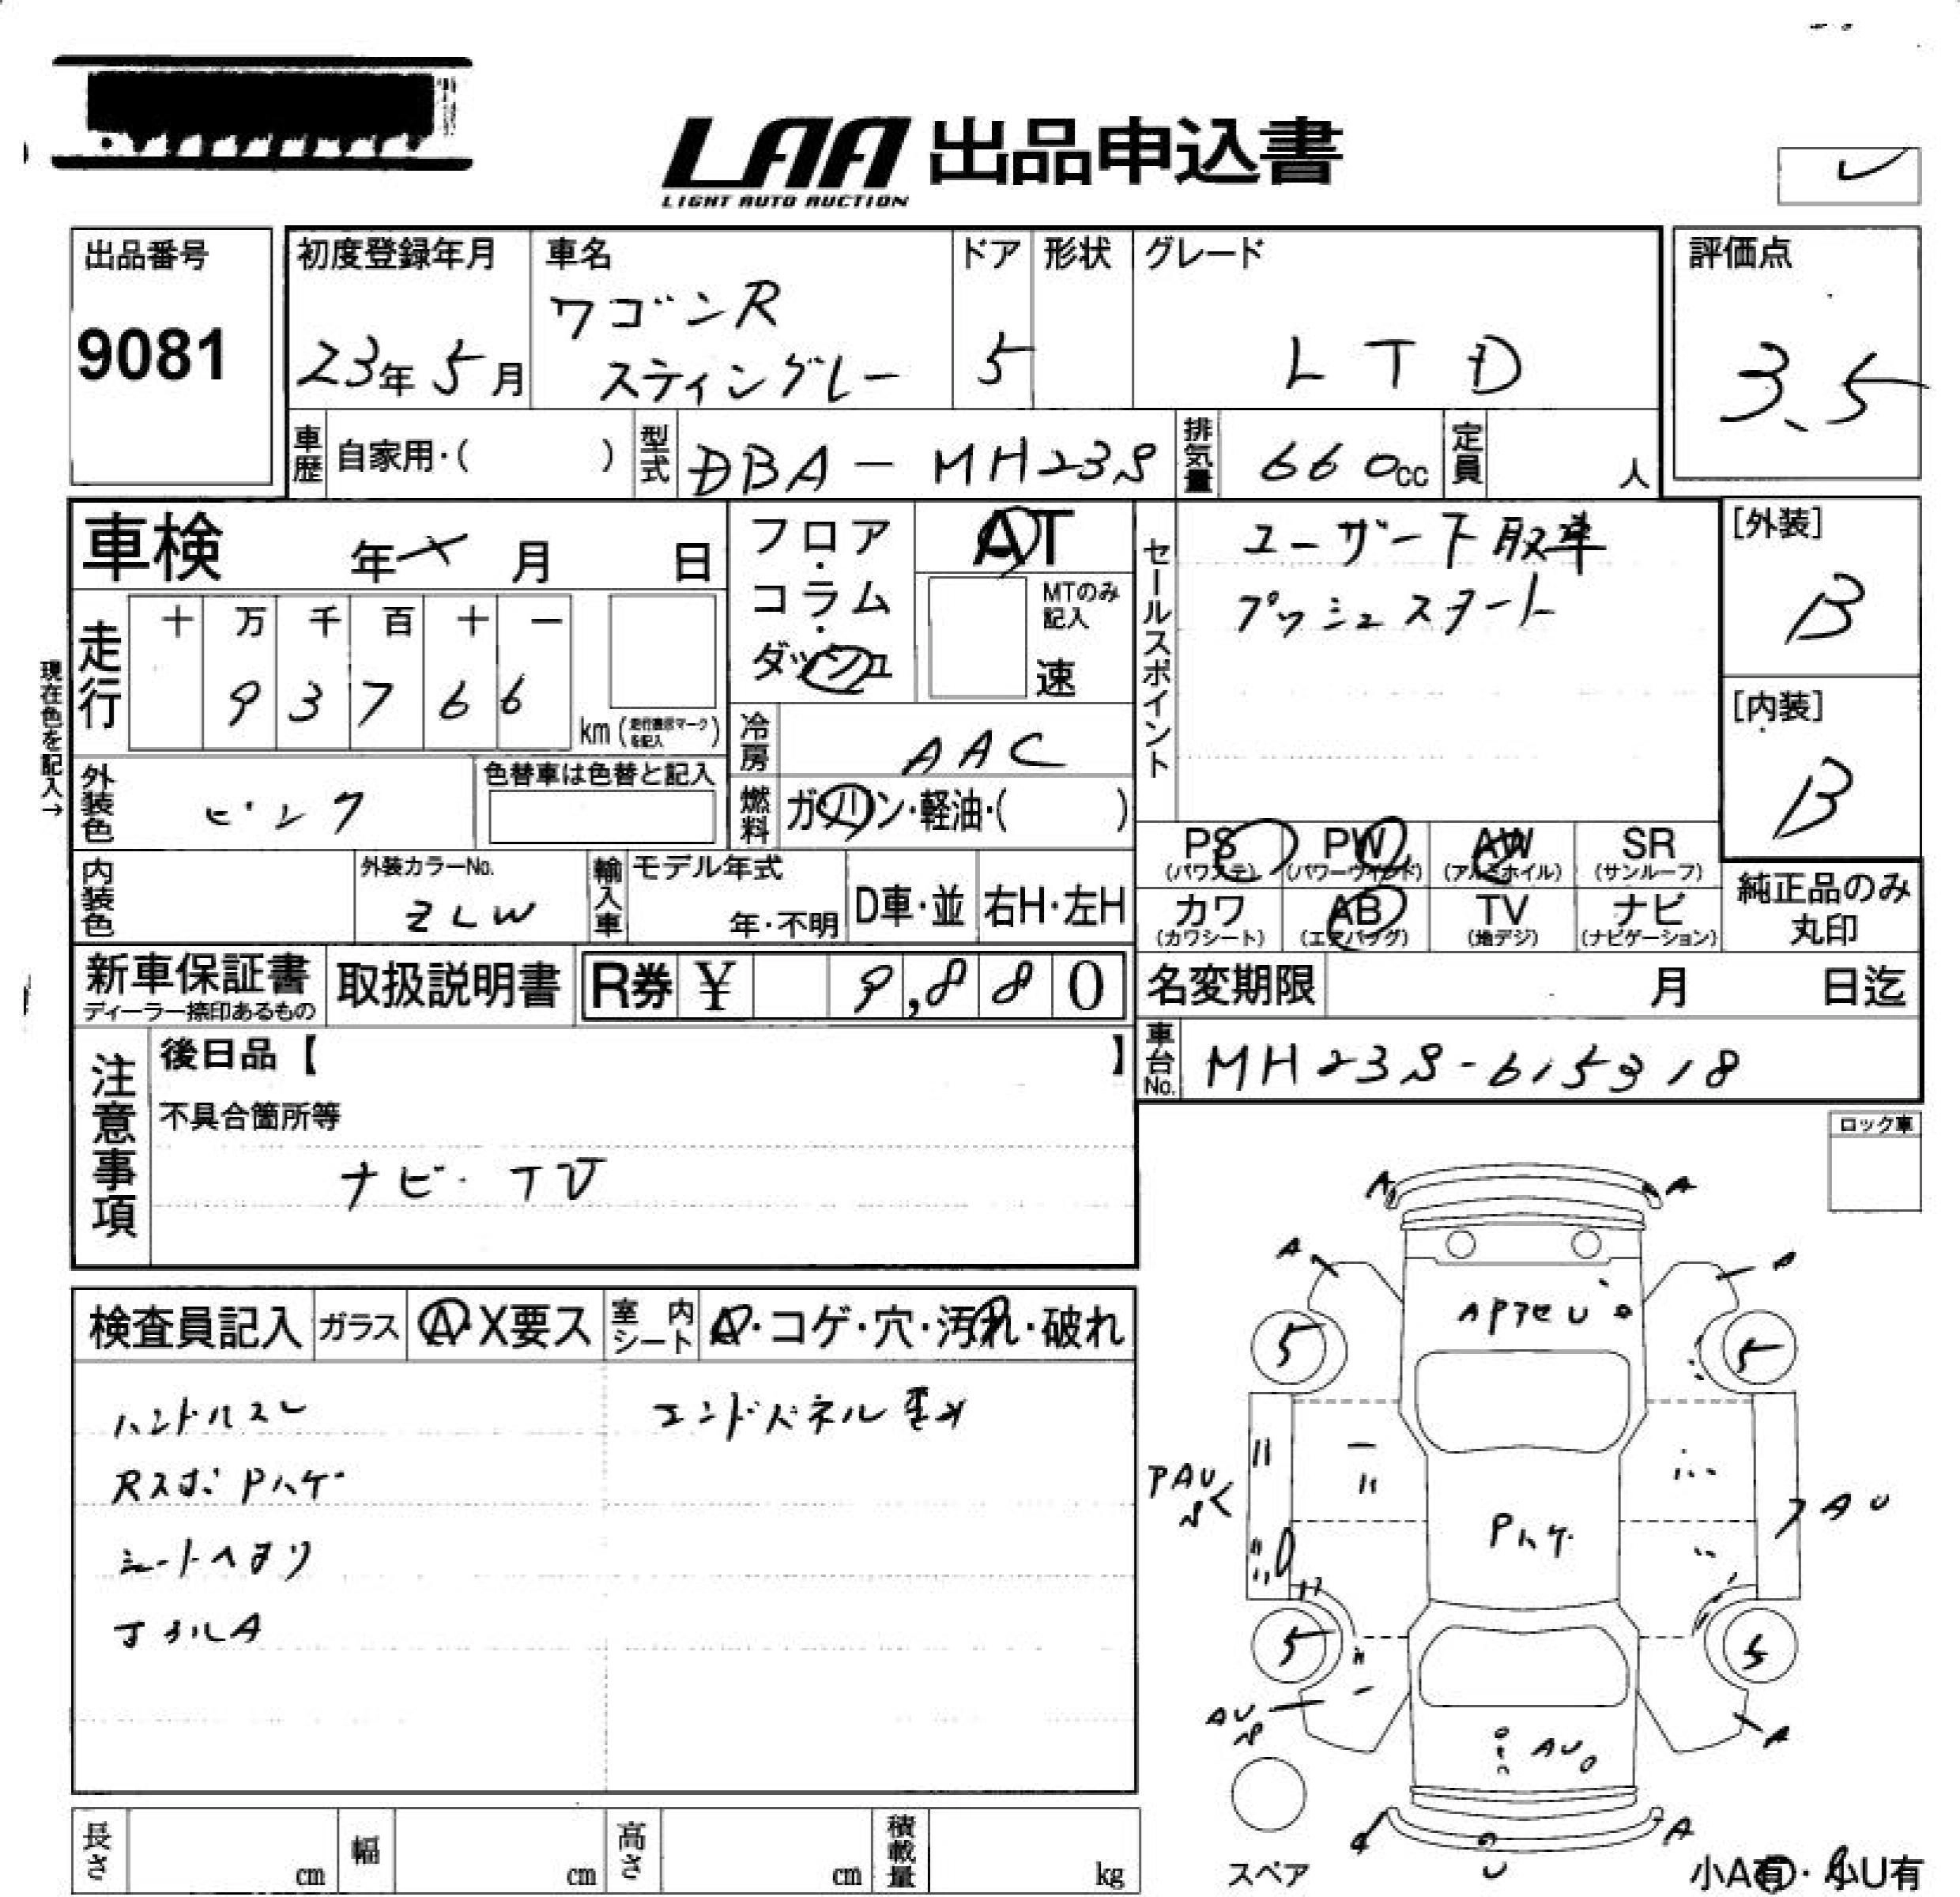 LAA 出品申込書
LIGHT AUTO AUCTION
出品番号
9081
初度登録年月
23年 5月
車名
ワゴンR
スティングレー
ドア
5
形状
グレード
LTD
評価点
3.5
車歴
自家用・( )
型式
DBA-MH23S
排気量
660cc
定員
人
車検 年 月 日
フロア・コラム・ダッシュ
AT
MTのみ記入
速
セールスポイント
ユーザー下取車
プッシュスタート
[外装]
B
[内装]
B
現在色を記入→
走行
十 万 千 百 十 一
9 3 7 6 6
km (走行表示マークを記入)
冷房
AAC
外装色
ピンク
色替車は色替と記入
燃料
ガソリン・軽油・( )
PS (パワステ)
PW (パワーウィンド)
AW (アルミホイル)
SR (サンルーフ)
カワ (カワシート)
AB (エアバッグ)
TV (地デジ)
ナビ (ナビゲーション)
純正品のみ丸印
内装色
外装カラーNo.
ZLW
輸入車
モデル年式
年・不明
D車・並
右H・左H
新車保証書
ディーラー捺印あるもの
取扱説明書
R券 ¥ 9,880
名変期限 月 日迄
車台No.
MH23S-615318
注意事項
後日品【 】
不具合箇所等
ナビ・TV
ロック車
検査員記入
ガラス
A・X要ス
室内シート
A・コゲ・穴・汚れ・破れ
ハンドルスレ
エンドパネル歪み
Rスポ Pハゲ
シートヘタリ
A
A
A
A
U
5
5
PAU
AU
Pハゲ
5
5
AU
A
AU
A
U
スペア
小A有・小U有
長さ cm
幅 cm
高さ cm
積載量 kg